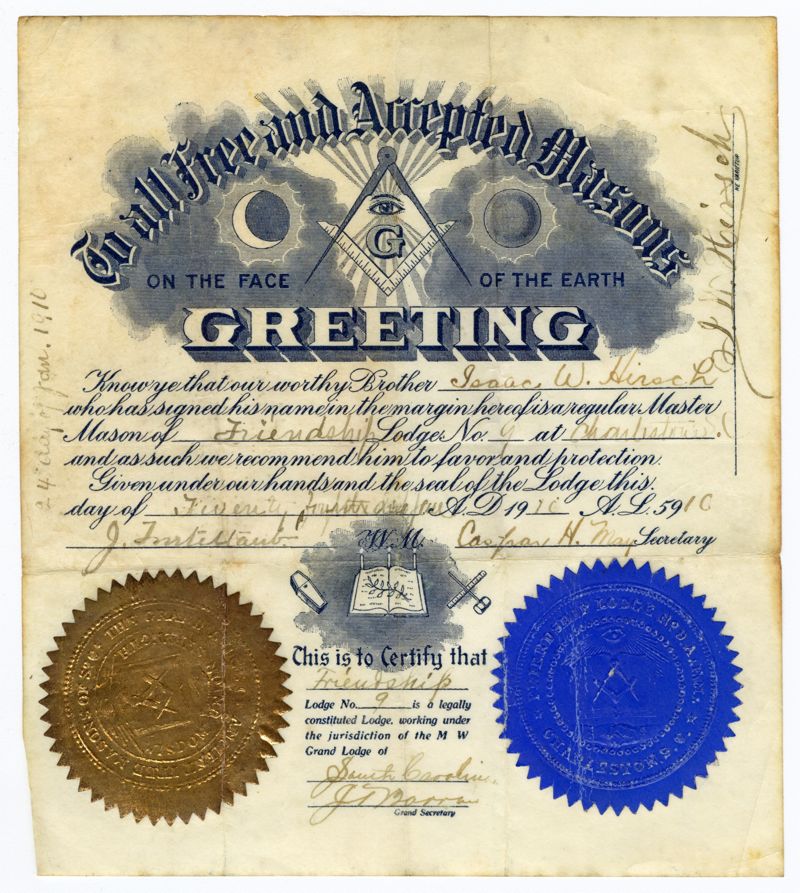 To all Free and Accepted Masons
ON THE FACE OF THE EARTH
G
GREETING
Know ye that our worthy Brother Isaac W. Hirsch
who has signed his name in the margin hereof is a regular Master
Mason of Friendship Lodge No. 9 at Charleston S.C
and as such we recommend him to favor and protection.
Given under our hands and the seal of the Lodge this
day of Twenty fourth A.D 1910 A.L. 5910
J. W.M. Caspar H. May Secretary
This is to Certify that
Friendship
Lodge No. 9 is a legally
constituted Lodge, working under
the jurisdiction of the M W
Grand Lodge of
South Carolina
Grand Secretary
24 day of Jan. 1910
I W Hirsch
NE VARIETUR
FRIENDSHIP LODGE No. 9 A.F.M.
CHARLESTON S.C.